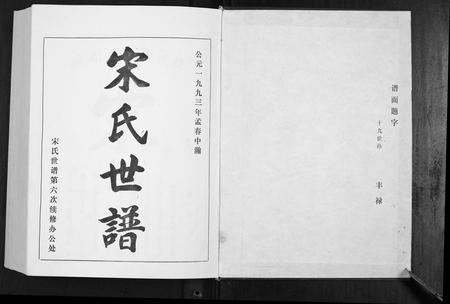 公元一九九三年孟春中瀚
宋氏世譜
宋氏世谱第六次续修办公处
谱面题字
十九世孙 丰禄